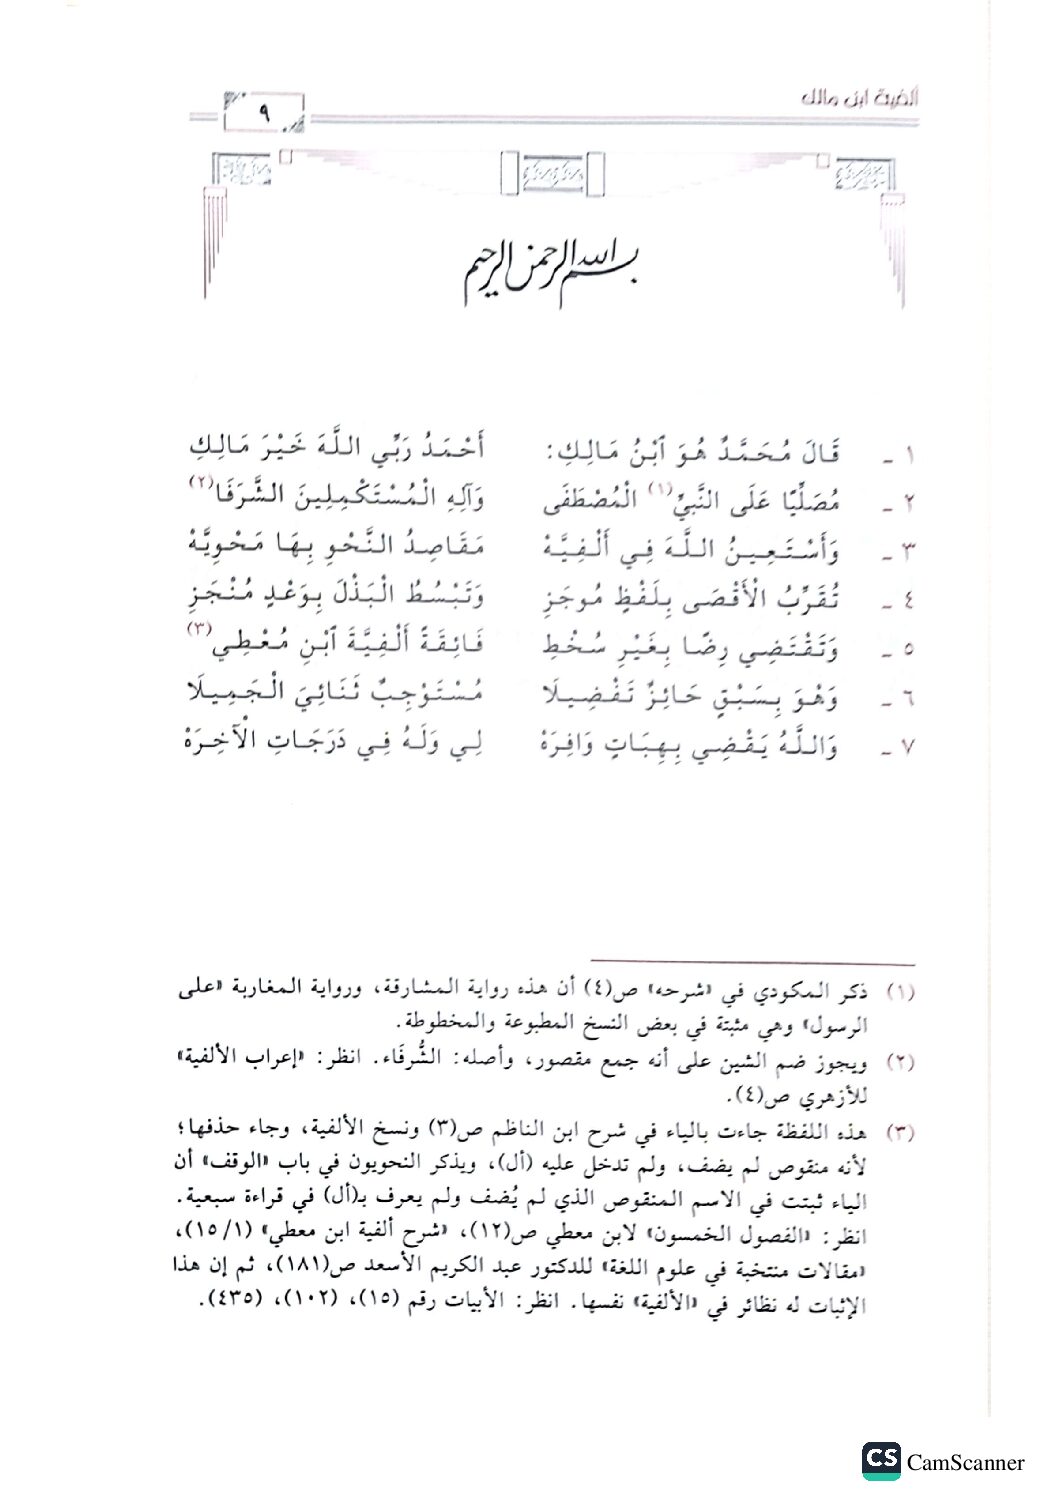 ألفية ابن مالك
٩
بسم الله الرحمن الرحيم
١ ـ قَالَ مُحَمَّدٌ هُوَ ٱبْنُ مَالِكِ: أَحْمَدُ رَبِّي اللَّهَ خَيْرَ مَالِكِ
٢ ـ مُصَلِّيًا عَلَى النَّبِيِّ(١) الْمُصْطَفَى وَآلِهِ الْمُسْتَكْمِلِينَ الشَّرَفَا(٢)
٣ ـ وَأَسْتَعِينُ اللَّهَ فِي أَلْفِيَّهْ مَقَاصِدُ النَّحْوِ بِهَا مَحْوِيَّهْ
٤ ـ تُقَرِّبُ الْأَقْصَى بِلَفْظٍ مُوجَزِ وَتَبْسُطُ الْبَذْلَ بِوَعْدٍ مُنْجَزِ
٥ ـ وَتَقْتَضِي رِضًا بِغَيْرِ سُخْطِ فَائِقَةً أَلْفِيَّةَ ٱبْنِ مُعْطِي(٣)
٦ ـ وَهْوَ بِسَبْقٍ حَائِزٌ تَفْضِيلَا مُسْتَوْجِبٌ ثَنَائِيَ الْجَمِيلَا
٧ ـ وَاللَّهُ يَقْضِي بِهِبَاتٍ وَافِرَهْ لِي وَلَهُ فِي دَرَجَاتِ الْآخِرَهْ
(١) ذكر المكودي في «شرحه» ص(٤) أن هذه رواية المشارقة، ورواية المغاربة «على
الرسول» وهي مثبتة في بعض النسخ المطبوعة والمخطوطة.
(٢) ويجوز ضم الشين على أنه جمع مقصور، وأصله: الشُّرفَاء. انظر: «إعراب الألفية»
للأزهري ص(٤).
(٣) هذه اللفظة جاءت بالياء في شرح ابن الناظم ص(٣) ونسخ الألفية، وجاء حذفها؛
لأنه منقوص لم يضف، ولم تدخل عليه (أل)، ويذكر النحويون في باب «الوقف» أن
الياء ثبتت في الاسم المنقوص الذي لم يُضف ولم يعرف بـ(أل) في قراءة سبعية.
انظر: «الفصول الخمسون» لابن معطي ص(١٢)، «شرح ألفية ابن معطي» (١/١٥)،
«مقالات منتخبة في علوم اللغة» للدكتور عبد الكريم الأسعد ص(١٨١)، ثم إن هذا
الإثبات له نظائر في «الألفية» نفسها. انظر: الأبيات رقم (١٥)، (١٠٢)، (٤٣٥).
CS CamScanner